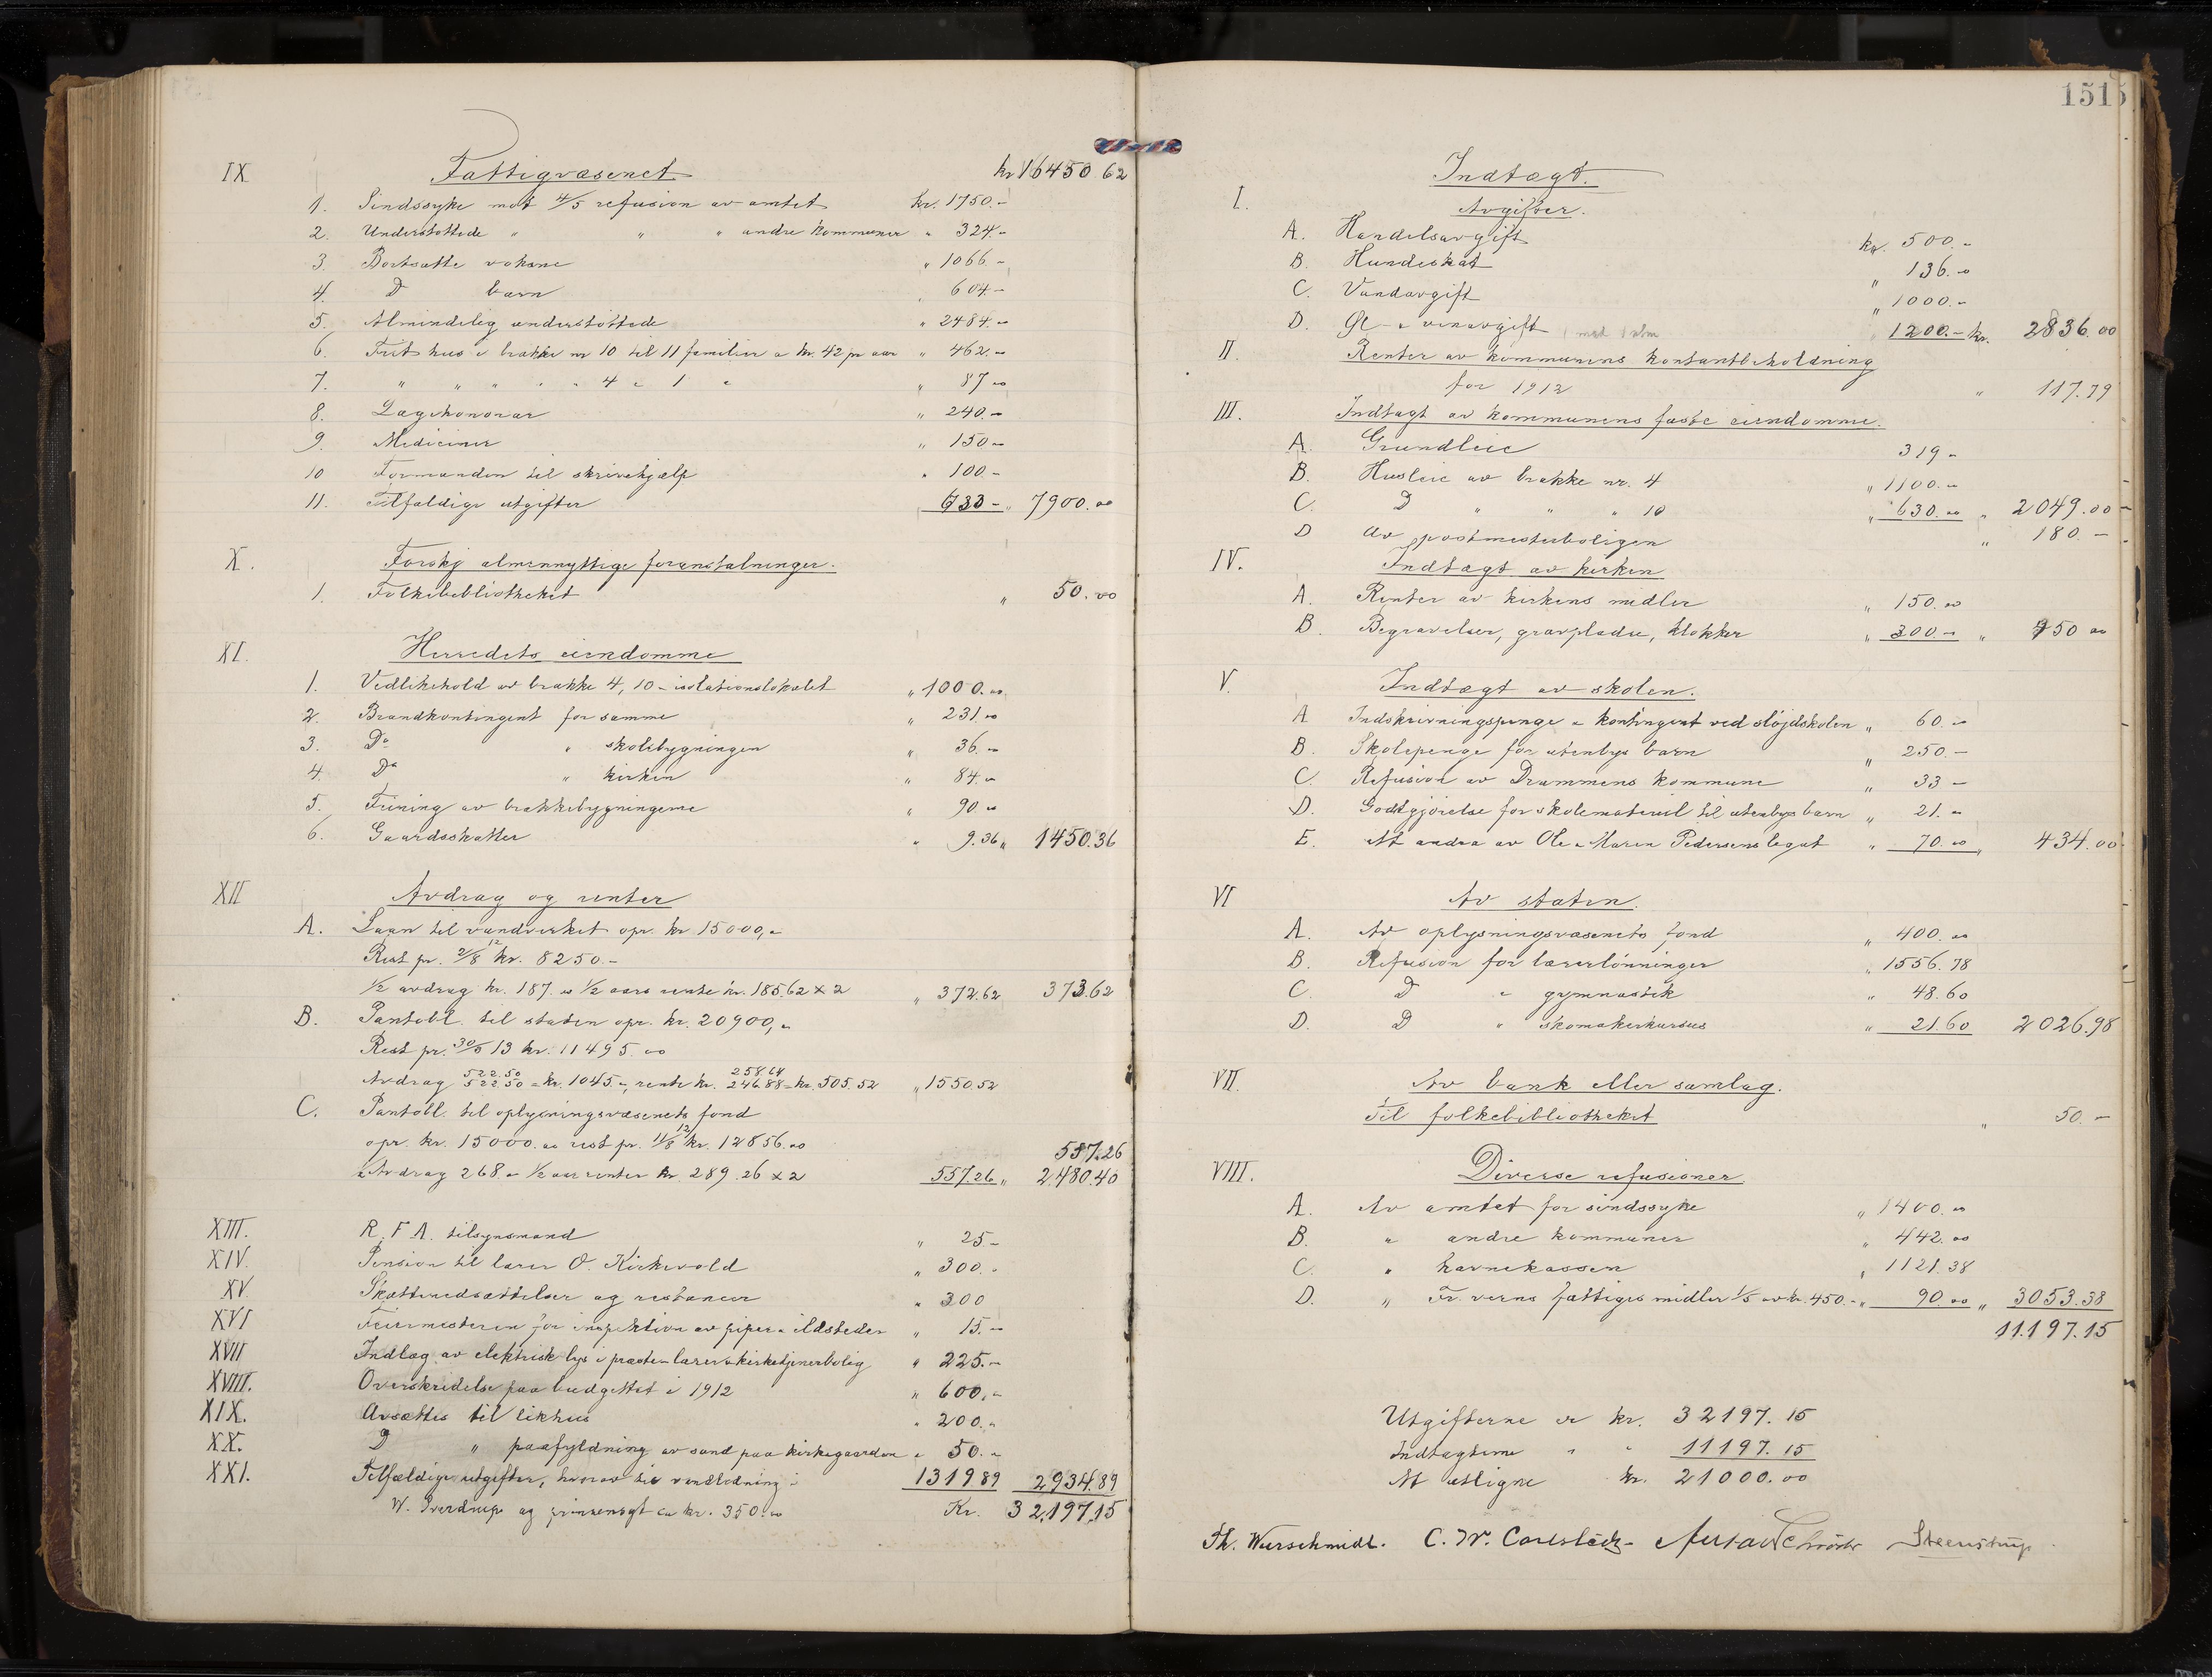 IX Fattigvæsenet kr 16450.62
1. Sindssyke mot 4/5 refusion av amtet kr. 1750.-
2. Understøttede " " " andre kommuner " 324.-
3. Bortsatte voksne " 1066.-
4. D barn " 604.-
5. Almindelig understøttede " 2484.-
6. Frit hus i brakke nr 10 til 11 familier a kr. 42 pr aar " 462.-
7. " " " " " 4 " 1 " " 87.00
8. Lægehonorar " 240.-
9. Mediciner " 150.-
10 Formanden til skrivehjælp " 100.-
11. Tilfældige utgifter 633 - " 7900.00
X. Forskj almennyttige foranstaltninger.
1. Folkebibliotheket " 50.00
XI. Herredets eiendomme
1. Vedlikehold av brakke 4, 10 - isolationslokalet " 1000.00
2. Brandkontingent for samme " 231.00
3. Do " skolebygningen " 36.00
4. Do " kirken " 84.00
5. Feining av brakkebygningerne " 90.00
6. Gaardsskatter " 9.36 " 1450.36
XII Avdrag og renter
A. Laan til vandverket opr. kr. 15000,-
Rest pr. 2/8 12 kr. 8250.-
1/2 avdrag kr. 187. 1/2 aars rente kr. 185.62 x 2 " 372.62 373.62
B. Pantobl. til staten opr. kr. 20900,-
Rest pr. 30/6 13 kr. 11495.00
522.50 258.64
Avdrag 522.50 = kr. 1045.-, rente kr. 246.88 = kr. 505.52 " 1550.52
C. Pantobl. til oplysningsvæsenets fond
opr. kr. 15000.00 rest pr. 11/8 12 kr. 12856.00 557.26
Avdrag 268.- 1/2 aar renter kr. 289.26 x 2 557.26 " 2.480.40
XIII. R. F. A. tilsynsmand " 25-
XIV. Pension til lærer O. Kirkevold " 300.-
XV. Skattenedsættelser og restancer " 300
XVI Feiermesteren for inspektion av piper & ildsteder " 15.-
XVII Indlæg av elektrisk lys i præste- lærer & kirketjenerbolig " 225.-
XVIII. Overskridelse paa budgettet i 1912 " 600.-
XIX. Avsættes til likhus " 200.-
XX. D " paafyldning av sand paa kirkegaarden " 50.-
XXI. Tilfældige utgifter, hvorav til vandledning i 1319.89 2934.89
W. Sverdrups og ca kr. 350.00 Kr. 32,197.15
1515
Indtægt.
I. Avgifter.
A. Handelsavgift kr. 500.-
B. Hundeskat " 136.00
C. Vandavgift " 1000.-
D. Øl- & vinavgift 1200.- kr. 2836.00
II. Renter av kommunens kontantbeholdning
for 1912 " 117.79
III. Indtægt av kommunens faste eiendomme.
A. Grundleie 319 -
B. Husleie av brakke nr. 4 " 1100.-
C. D " " " 10 " 630.00 " 2049.00
D Av postmesterboligen " 180.-
IV. Indtægt av kirken
A. Renter av kirkens midler " 150.00
B. Begravelser, gravpladse, klokker " 300.- " 450 00
V. Indtægt av skolen.
A Indskrivningspenge & kontingent ved sløjdskolen " 60.-
B. Skolepenge for utenbys barn " 250 -
C. Refusion av Drammens kommune " 33 -
D. Godtgjørelse for skolemateriel til utenbys barn " 21.-
E. At andra av Ole & Maren Pedersens legat " 70.00 " 434.00
VI Av staten.
A. Av oplysningsvæsenets fond " 400.00
B. Refusion for lærerlønninger " 1556.78
C. D " gymnastik " 48.60
D. D " skomakerkursus " 21.60 2026.98
VII. Av bank eller samlag.
Til folkebibliotheket " 50.-
VIII. Diverse refusioner
A. Av amtet for sindssyke " 1400.00
B. " andre kommuner " 442.00
C. " havnekassen " 1121.38
D. " Fr. verns fattiges midler 1/5 av kr. 450.- " 90.00 " 3053.38
11.197.15
Utgifterne er kr. 32197.15
Indtægterne " " 11197.15
At utligne kr. 21000.00
Th. Wurschmidt. C. W. Carlstedt - Steenstrup